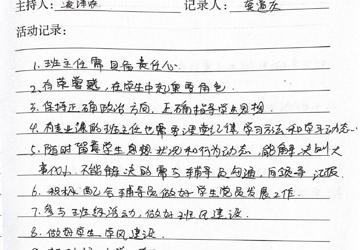 主持人： 记录人：
活动记录：
1. 班主任需具备责任心
2. 有荣誉感，在学生中起重要角色
3. 保持正确政治方向，正确指导学生思想
4. 有专业课的班主任也需要课堂纪律，学习方法和学习动态
5. 随时留意学生思想状况和行为动态，能解决则大
不能解决的需与辅导员沟通，向领导汇报
6. 积极配合辅导员做好学生党员发展工作.
7. 参与班级活动，做好班风建设
8. 做好学生学风建设